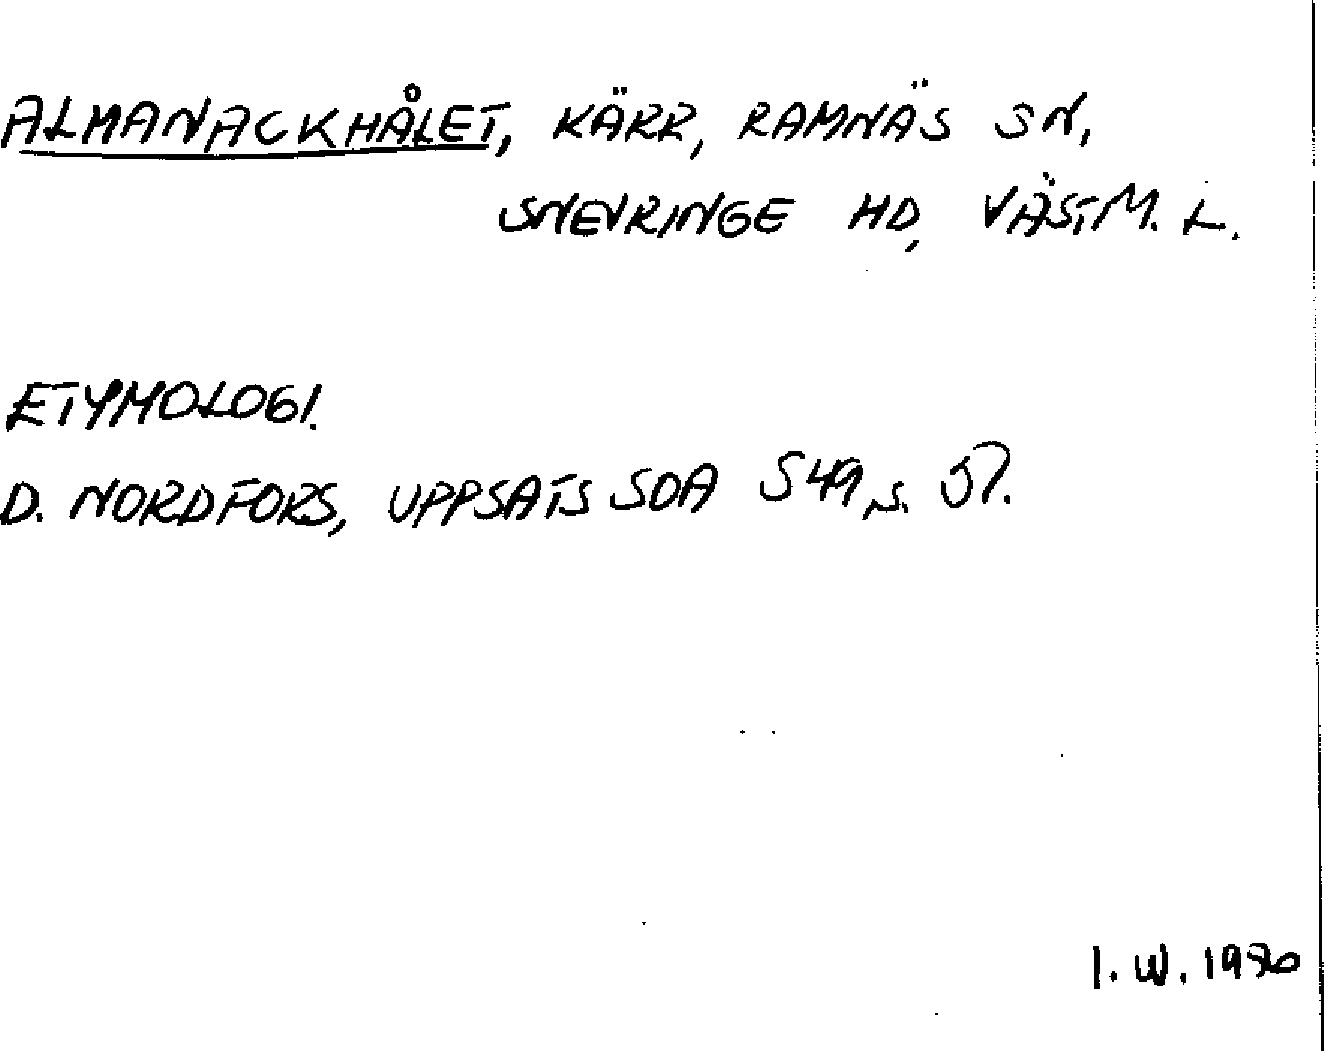 ALMANACKHÅLET, KÄRR, RAMNÄS SN,
SNEVRINGE HD, VÄSTM. L.
ETYMOLOGI.
D. NORDFORS, UPPSATS SOA S49, s. 57.
I. W. 1986